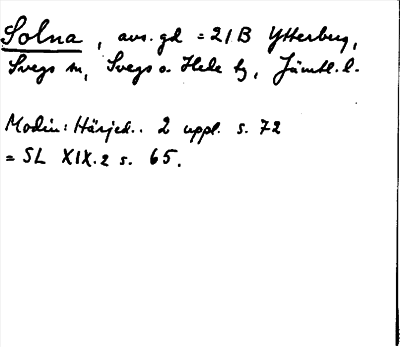 Solna, avs. gd = 21B Ytterberg,
Svegs sn, Svegs o. Hede tg, Jämtl. l.
Modin: Härjed.. 2 uppl. s. 72
= SL XIX.2 s. 65.